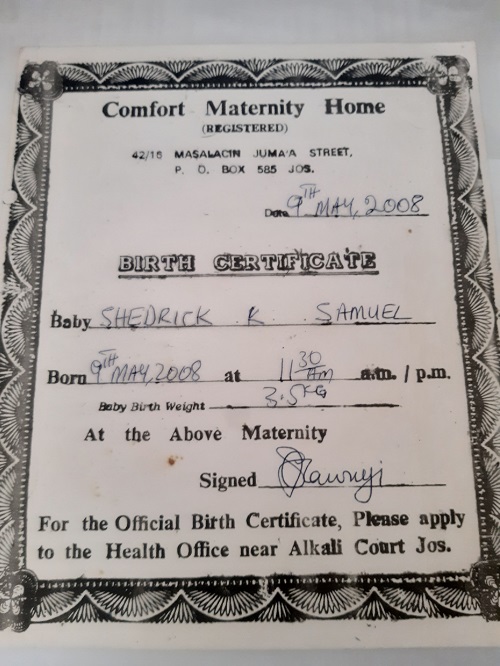 Comfort Maternity Home
(REGISTERED)
42/16 MASALACIN JUMA'A STREET,
P. O. BOX 585 JOS.
Date 9TH MAY, 2008
BIRTH CERTIFICATE
Baby SHEDRICK K SAMUEL
Born 9TH MAY, 2008 at 11 30 AM a.m. / p.m.
Baby Birth Weight 3.5KG
At the Above Maternity
Signed
For the Official Birth Certificate, Please apply
to the Health Office near Alkali Court Jos.